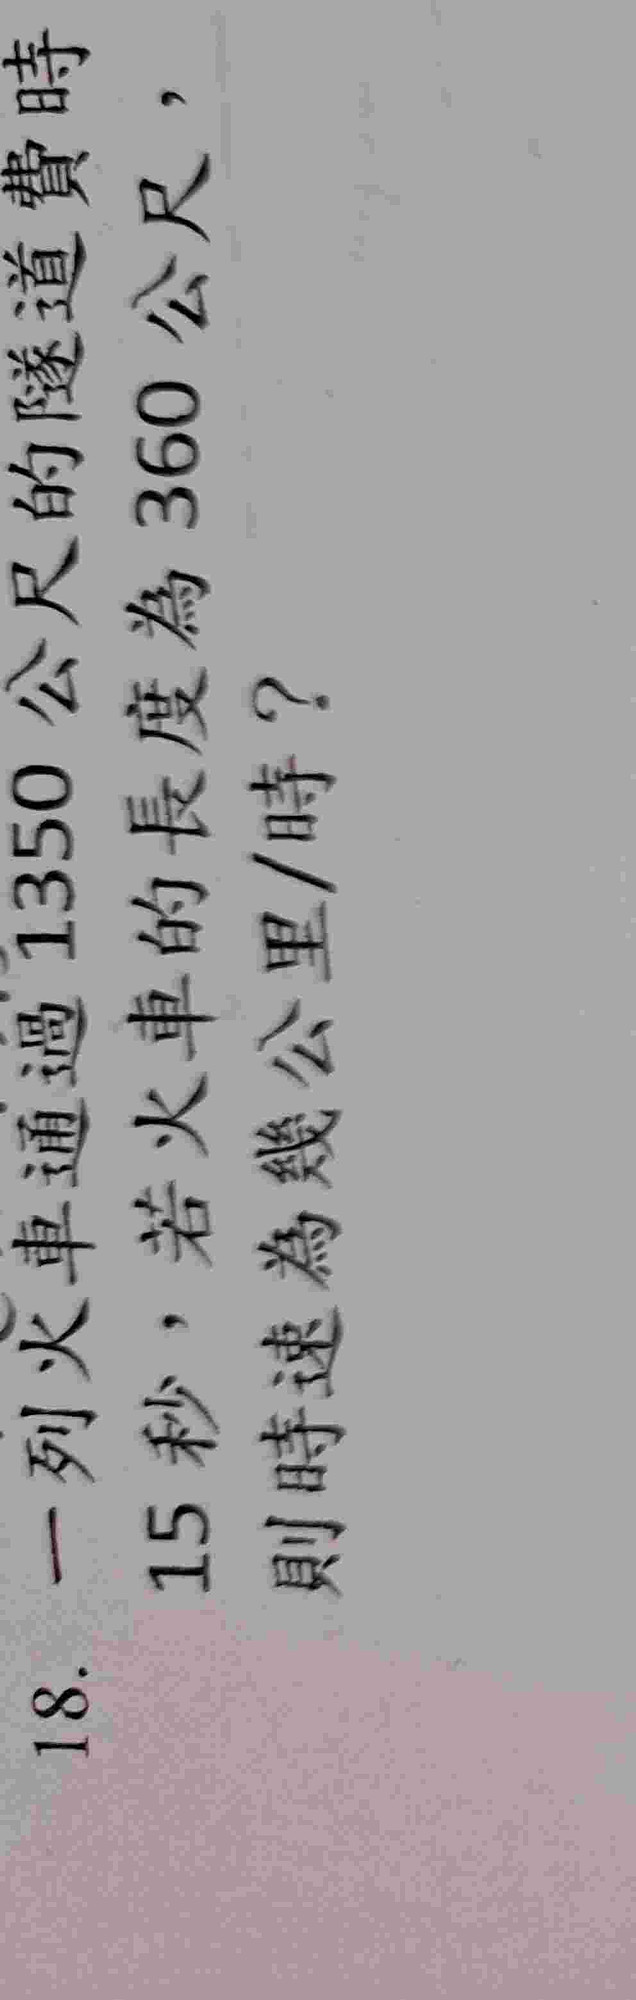 18. 一列火車通過 1350 公尺的隧道費時
15 秒，若火車的長度為 360 公尺，
則時速為幾公里/時？